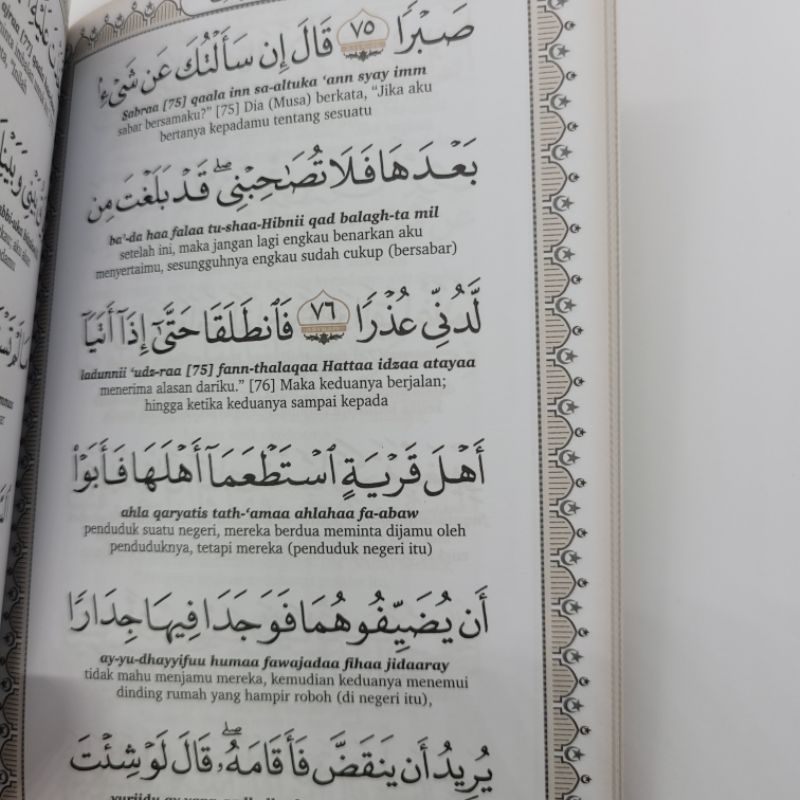 صَبْرًا ٧٥ قَالَ إِن سَأَلْتُكَ عَن شَىْءٍۭ
Sabraa [75] qaala inn sa-altuka ‘ann syay imm
sabar bersamaku?” [75] Dia (Musa) berkata, “Jika aku
bertanya kepadamu tentang sesuatu
بَعْدَهَا فَلَا تُصَٰحِبْنِى ۖ قَدْ بَلَغْتَ مِن
ba’-da haa falaa tu-shaa-Hibnii qad balagh-ta mil
setelah ini, maka jangan lagi engkau benarkan aku
menyertaimu, sesungguhnya engkau sudah cukup (bersabar)
لَّدُنِّى عُذْرًا ٧٦ فَٱنطَلَقَا حَتَّىٰٓ إِذَآ أَتَيَآ
ladunnii ‘udz-raa [75] fann-thalaqaa Hattaa idzaa atayaa
menerima alasan dariku.” [76] Maka keduanya berjalan;
hingga ketika keduanya sampai kepada
أَهْلَ قَرْيَةٍ ٱسْتَطْعَمَآ أَهْلَهَا فَأَبَوْا۟
ahla qaryatis tath-‘amaa ahlahaa fa-abaw
penduduk suatu negeri, mereka berdua meminta dijamu oleh
penduduknya, tetapi mereka (penduduk negeri itu)
أَن يُضَيِّفُوهُمَا فَوَجَدَا فِيهَا جِدَارًا
ay-yu-dhayyifuu humaa fawajadaa fihaa jidaaray
tidak mahu menjamu mereka, kemudian keduanya menemui
dinding rumah yang hampir roboh (di negeri itu),
يُرِيدُ أَن يَنقَضَّ فَأَقَامَهُۥ ۖ قَالَ لَوْ شِئْتَ